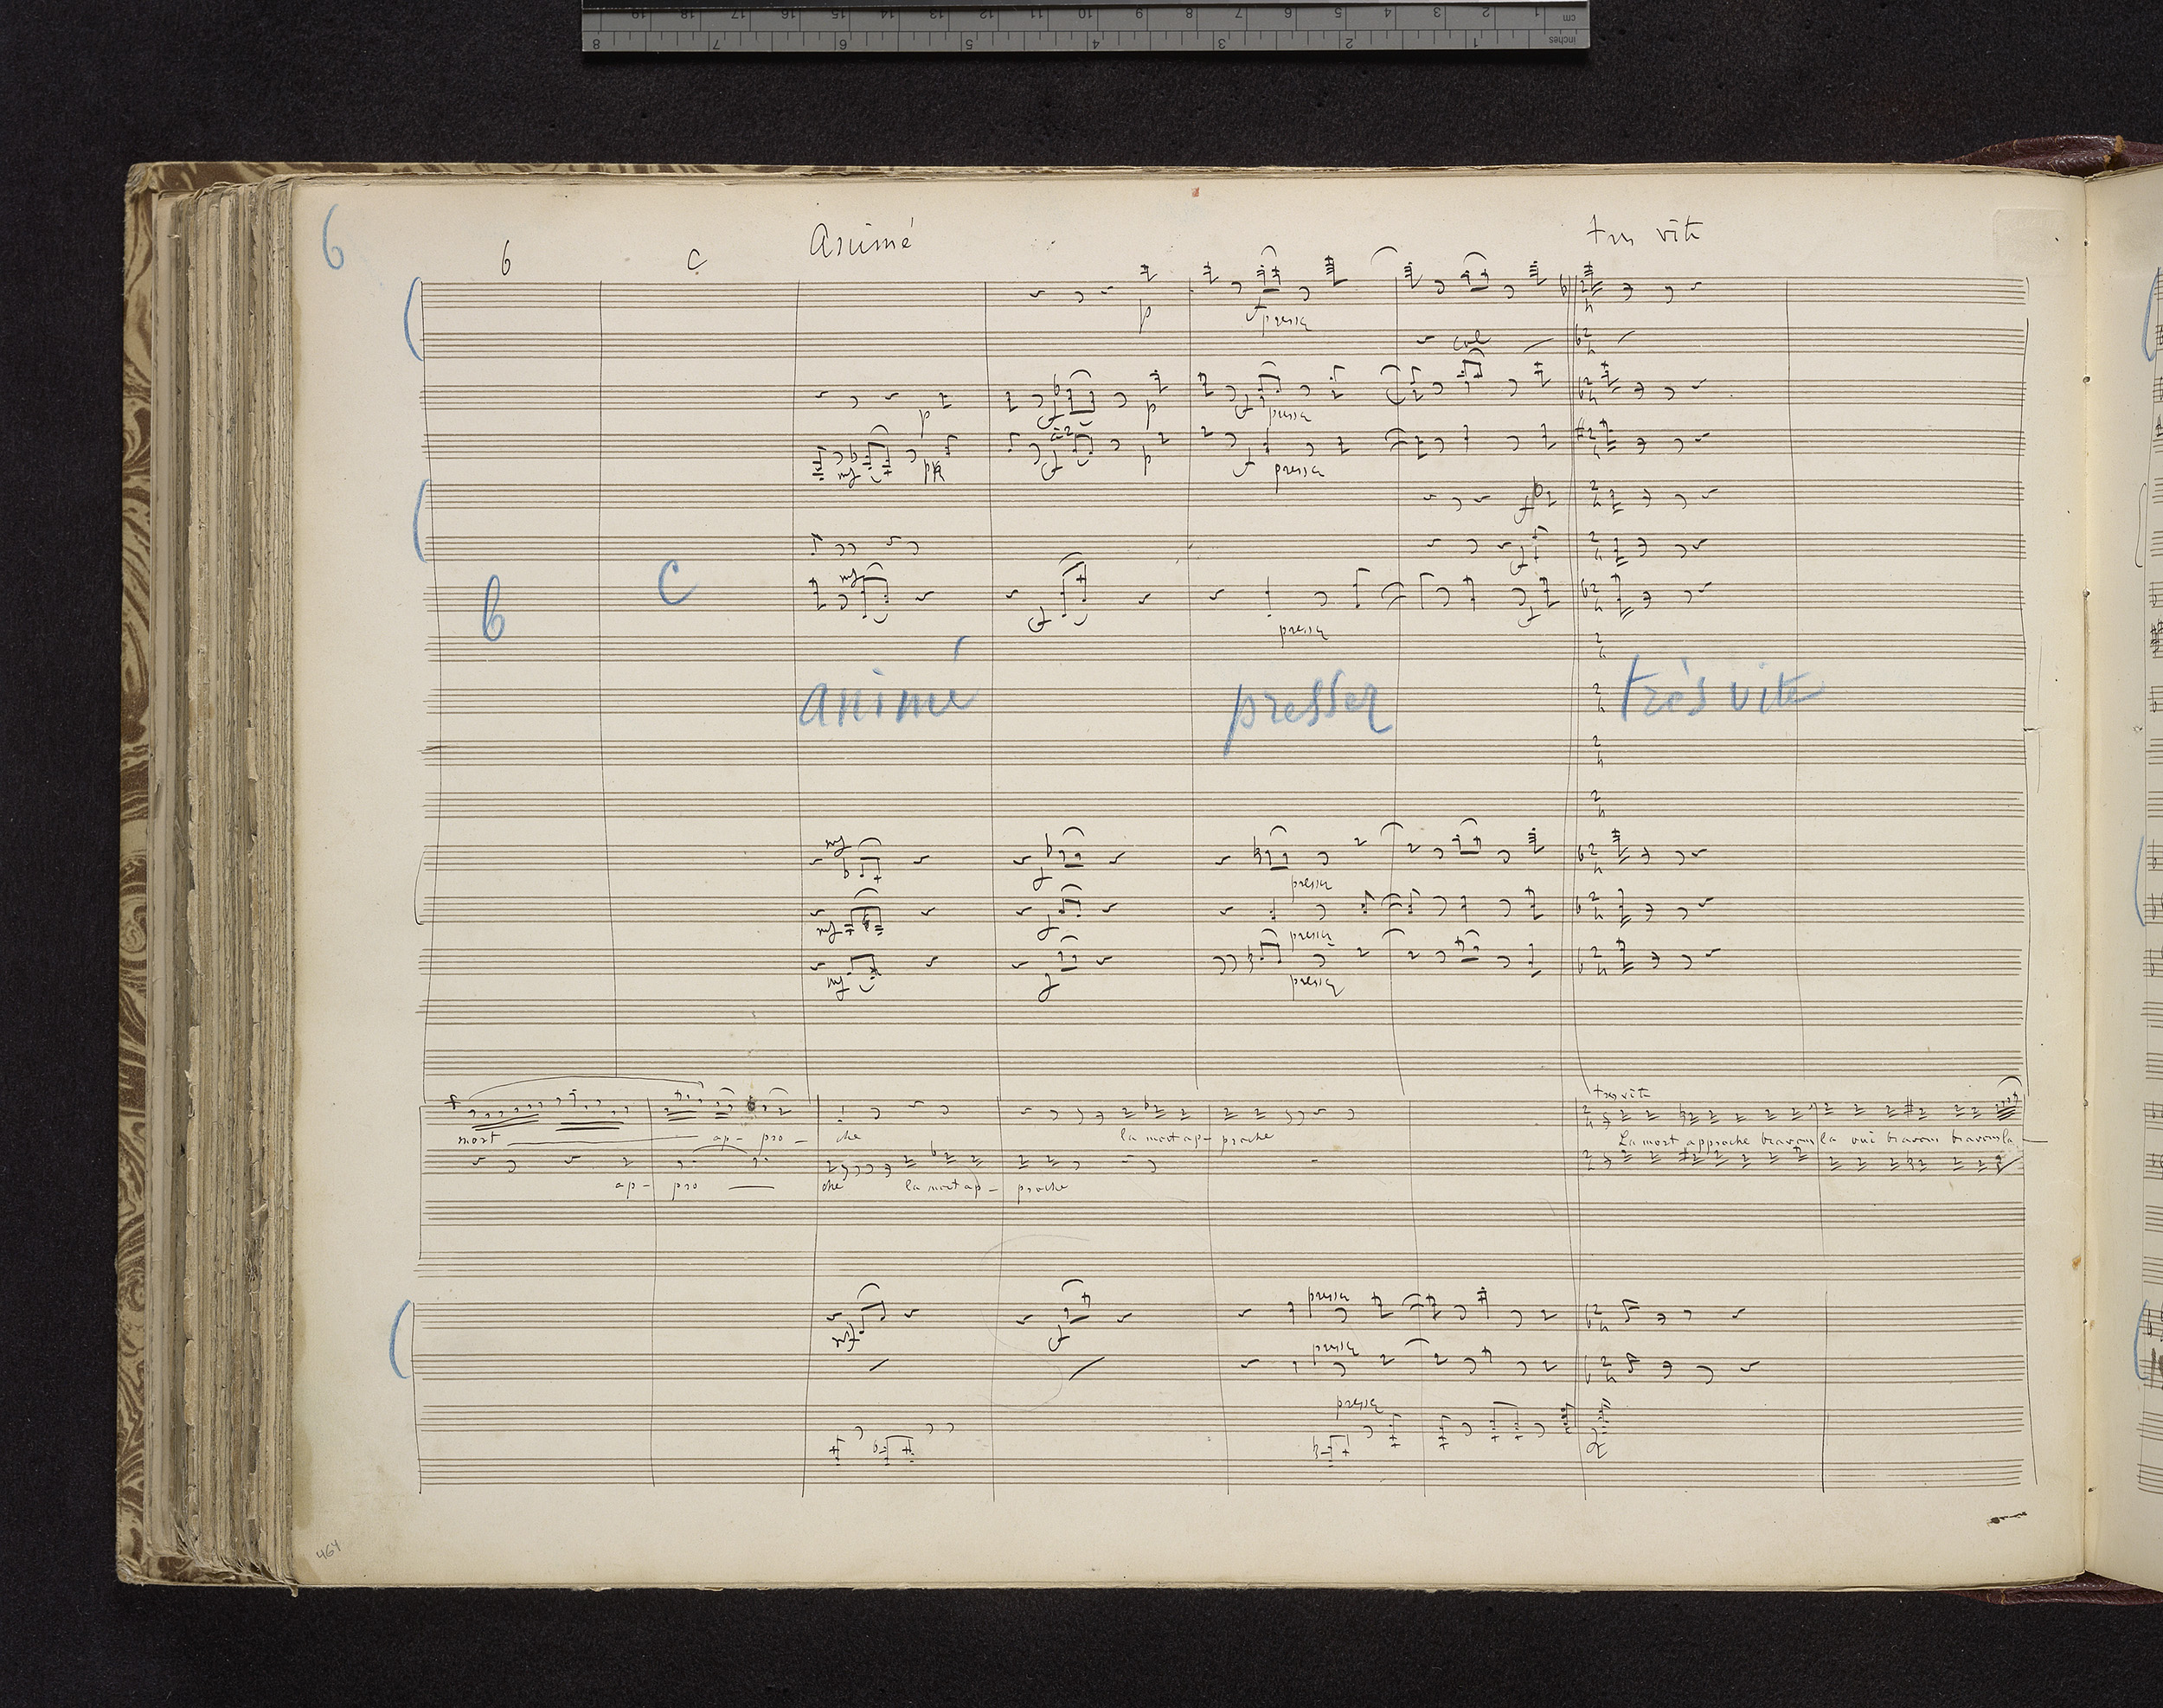 cm 1 2 3 4 5 6 7 8 9 10 11 12 13 14 15 16 17 18 19
inches 1 2 3 4 5 6 7 8
6
6 C Animé tres vite
p f presser
col
p f p f presser
mf p f p f presser
ff
f
6 C mf f presser f
animé presser très vite
mf f presser
mf f presser
mf f presser
f tres vite
mort ap- pro- che la mort ap- proche La mort approche bravons la oui bravons bravons la
ap- pro che la mort ap- proche
mf f presser
presser
presser
464